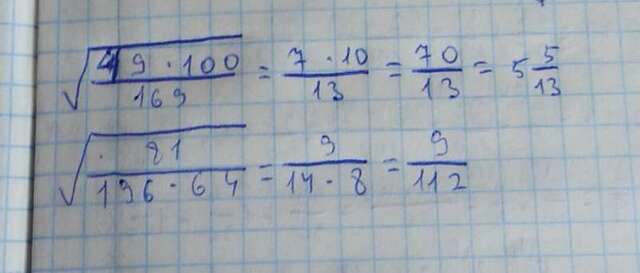 √(49·100/169) = 7·10/13 = 70/13 = 5 5/13
√(81/(196·64)) = 9/(14·8) = 9/112